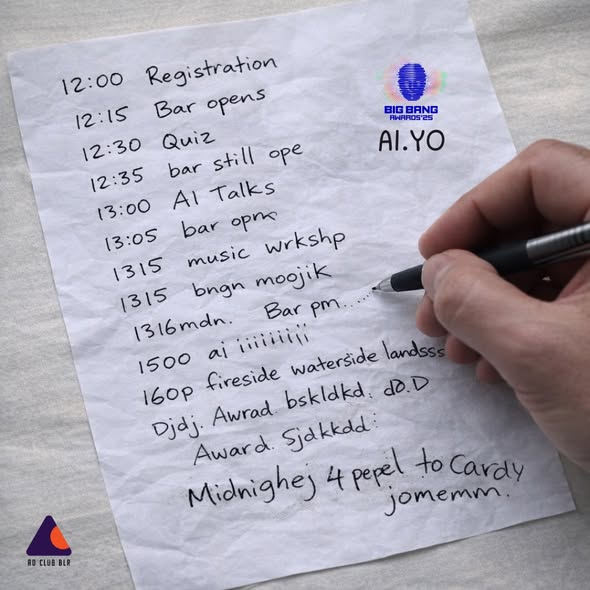 12:00 Registration
12:15 Bar opens
12:30 Quiz
12:35 bar still ope
13:00 AI Talks
13:05 bar opm
1315 music wrkshp
1315 bngn moojik
1316mdn. Bar pm......
1500 ai iiiiiiiji
160p fireside waterside landsss
Djdj. Awrad bskldkd. dO.D
Award. Sjdkkdd:
Midnighej 4 pepel to Cardy
jomemm.
BIG BANG
AWARDS'25
AI.YO
AD CLUB BLR